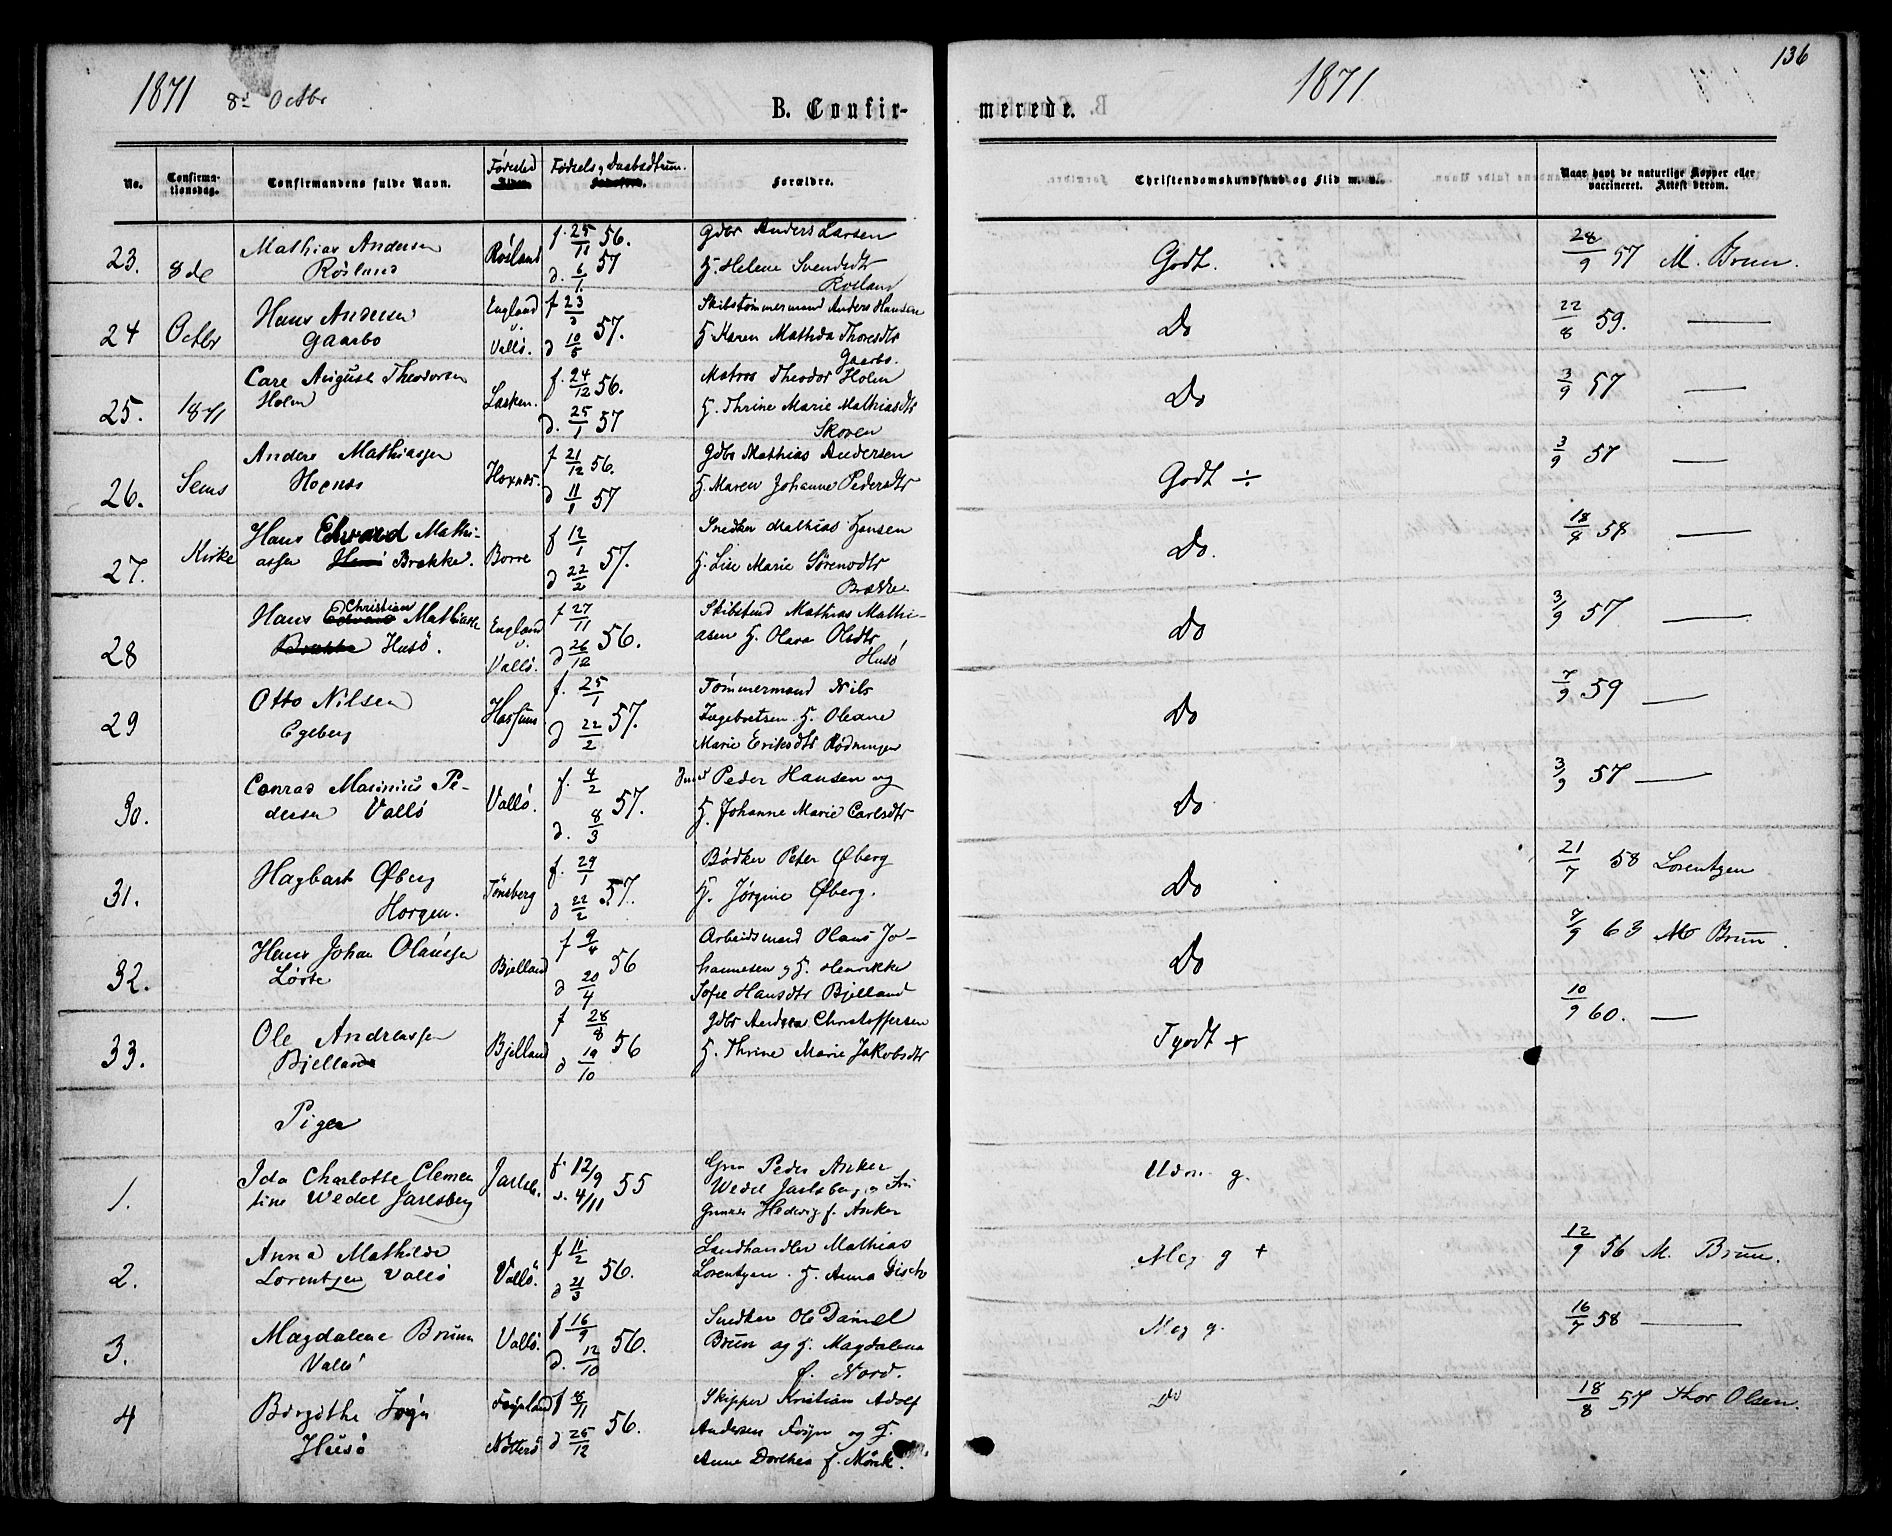 1871 8de Octbr
B. Confir-
merede.
1871
136
No.
Confirma-
tionsdag.
Confirmandens fulde Navn.
Fødested
Fødsels og Daabsdatum.
Forældre.
Christendomskundskab og Flid m. v.
Naar havt de naturlige Kopper eller
vaccineret. Attest derom.
23. 8de
Mathias Andersen
Røsland
Røsland
f. 25/11 56.
d. 6/1 57
Gdbr Anders Larsen
H. Helene Svendsdtr
Rosland
Godt.
28/9 57 M. Brun.
24 Octbr
Hans Andersen
Gaarbo
England
v.
Valløˑ
f 23/3
d 10/5 57.
Skibstømmermand Anders Hansen
H. Karen Mathea Thoresdtr
Gaarbo.
Do
22/8 59. —
25. 1871
Carl August Theodorsen
Holm
f. 24/12 56.
d. 25/1 57
Matros Theodor Holm
H. Thrine Marie Mathiasdtr
Skoven
Do
3/9 57 —
26. Sems
Anders Mathiassen
Hoxnes
Hoxnes.
f 21/12 56.
d 11/1 57
Gdbr Mathias Andersen
H. Maren Johanne Pedersdtr
Godt ÷
3/9 57 —
27. Kirke
Hans Edvard Mathi-
assen Brække.
Borre
f 12/1
d 22/2 57.
Snedker Mathias Hansen
H. Lise Marie Sørensdtr
Brække
Do.
18/8 58 —
28
Hans Christian Mathiass
Husö.
England
v.
Vallö.
f 27/11
d 26/12 56.
Mathias Mathi-
asen H. Olava Olsdtr
Husö
Do
3/9 57. —
29
Otto Nilsen
Egeberg
f. 25/1
d 22/2 57.
Tømmermand Nils
Ingebretsen H. Oleane
Marie Eriksdtr Rødningen
Do
7/9 59 —
30.
Conrad Marinius Pe-
dersen Vallö
Vallö.
f. 4/2
d. 8/3 57.
Peder Hansen og
H. Johanne Marie Carlsdtr
Do
3/9 57 —
31.
Hagbart Øberg
Horgen.
Tönsberg
f. 29/1
d 22/2 57.
Bødker Peter Øberg
H. Jørgine Øberg.
Do
21/7 58 Lorentzen
32.
Hans Johan Olaussen
Løvte
Bjelland
f 9/4
d 20/4 56
Arbeidsmand Olaus Jo-
hannesen og H. Henrikke
Sofie Hansdtr Bjelland
Do
7/9 63 M Brun.
33.
Ole Andreassen
Bjelland
Bjelland
f 28/8
d 19/10 56
Gdbr Andrea Christoffersen
H. Thrine Marie Jakobsdtr
Tgodt +
10/9 60. —
Piger
1.
Ida Charlotte Clemen
tine Wedel Jarlsberg
Jarlsb.
f. 12/9
d. 4/11 55
Peder Anker
Wedel Jarlsberg og Fru
Hedevig f. Anker
Udm. g.
2.
Anna Mathilde
Lorentzen Vallö
Vallö.
f 11/2
d 21/3 56.
Landhandler Mathias
Lorentzen. H. Anna Disch
Meg g +
12/9 56 M. Brun.
3.
Magdalene Brunn
Vallö
Vallö.
f 16/9
d. 12/10 56.
Snedker Ole Daniel
Brun og H. Magdalena
f. Nord.
Meg g.
16/7 58 —
4
Birgithe Foyn
Husö
Foynland
Nötterö
f 18/11
d 25/12 56.
Skipper Kristian Adolf
Andersen Foyn og H.
Anne Dorthea f. Mörk.
Do
18/8 57 Thor Olsen.